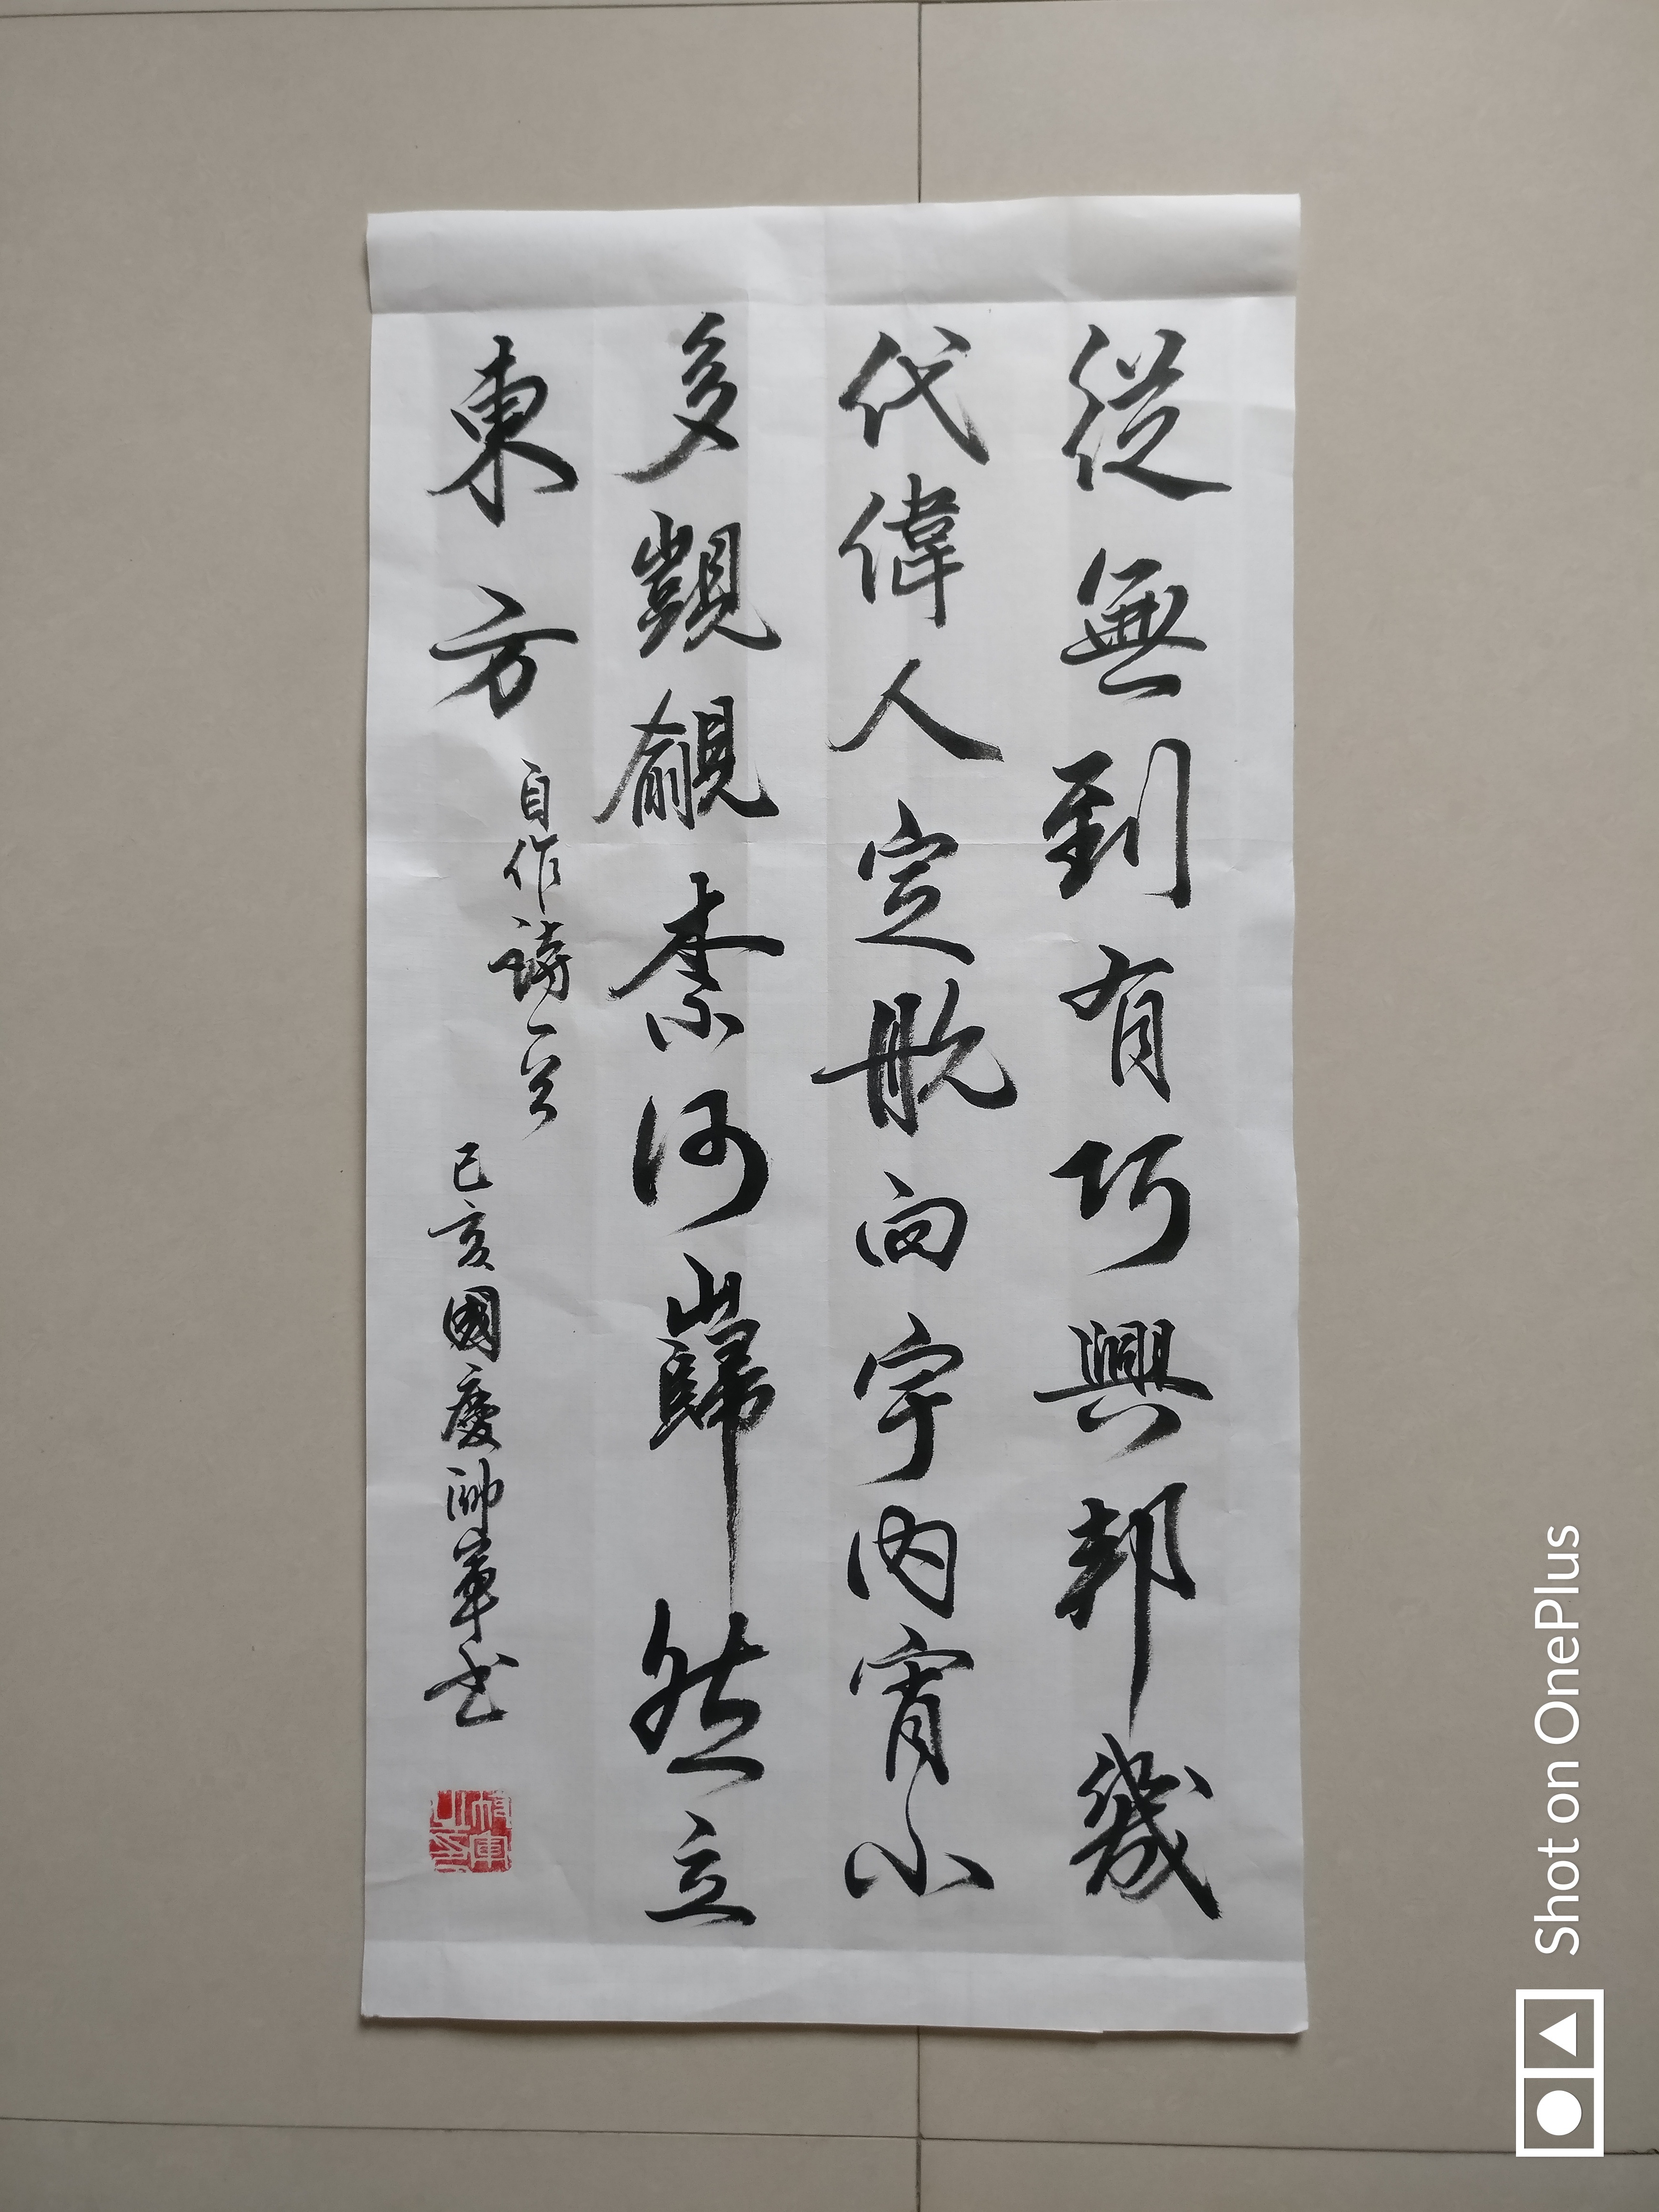 從無到有巧興邦幾
代偉人定航向宇内宵小
多覬覦柰何巋然立
東方
自作詩一首
己亥國慶帥軍书
Shot on OnePlus